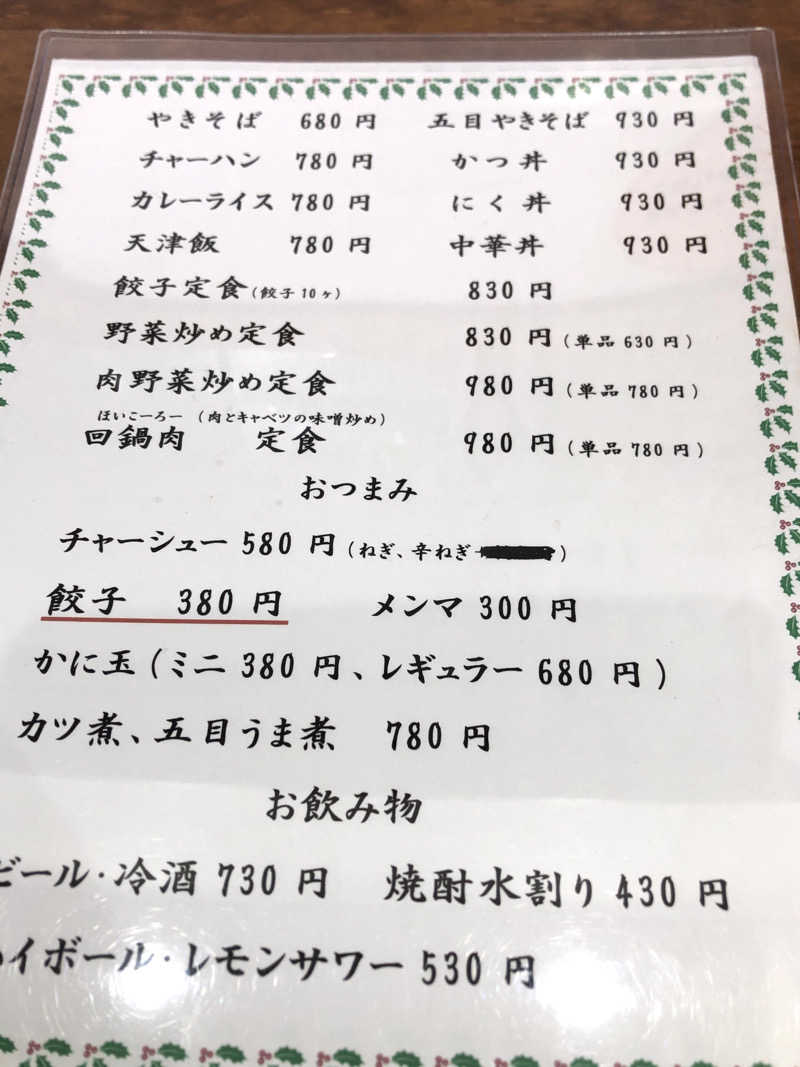 やきそば 680 円 五目やきそば 930 円
チャーハン 780 円 かつ丼 930 円
カレーライス 780 円 にく丼 930 円
天津飯 780 円 中華丼 930 円
餃子定食(餃子10ヶ) 830 円
野菜炒め定食 830 円(単品 630 円)
肉野菜炒め定食 980 円(単品 780 円)
ほいこーろー (肉とキャベツの味噌炒め)
回鍋肉 定食 980 円(単品 780 円)
おつまみ
チャーシュー 580 円(ねぎ、辛ねぎ)
餃子 380 円 メンマ 300 円
かに玉(ミニ 380 円、レギュラー 680 円)
カツ煮、五目うま煮 780 円
お飲み物
ビール・冷酒 730 円 焼酎水割り 430 円
ハイボール・レモンサワー 530 円